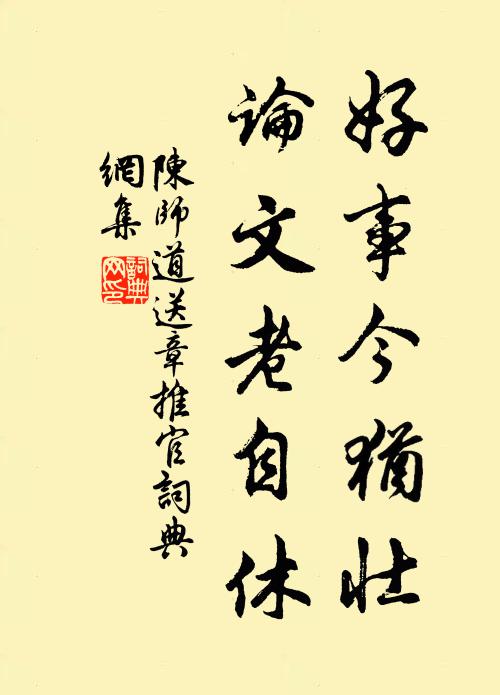 好事今猶壯
論文老自休
陳師道送章推官詞典
網集
詞典
网印